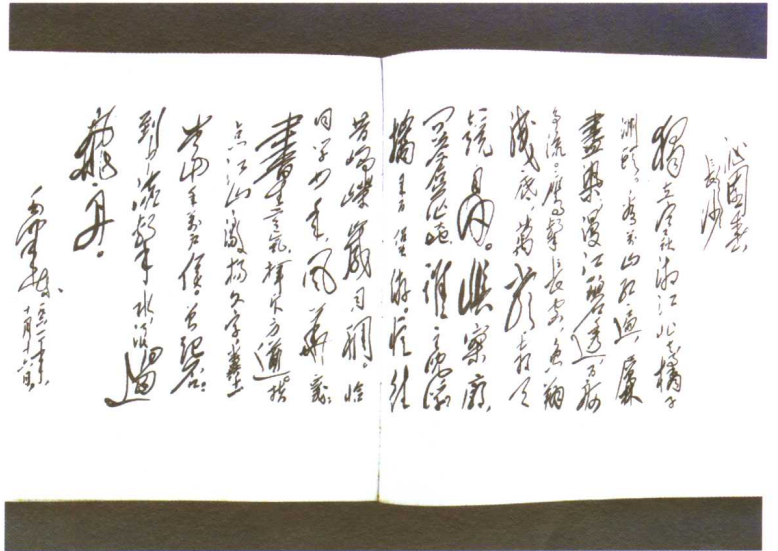 沁園春
長沙
獨立寒秋，湘江北去，橘子
洲頭。看万山红遍，層林
盡染；漫江碧透，百舸
争流。鷹擊長空，魚翔
淺底，萬類霜天
競自由。悵寥廓，
問蒼茫大地，誰主沉浮
攜来百侣曾游。憶往
昔崢嶸歲月稠。恰
同学少年，風華正茂；
書生意氣，揮斥方遒。指
点江山，激揚文字，糞土
當年萬户侯。曾記否，
到中流擊水，浪遏
飛舟。
毛澤東
十月十六日